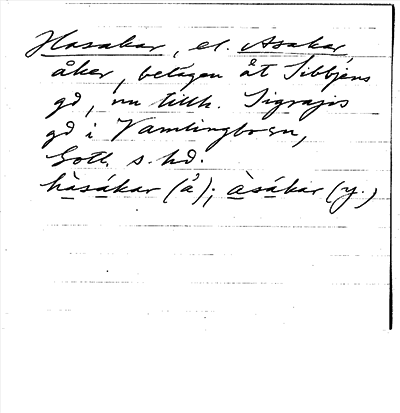 Hasakar, el. Asakar,
åker, belägen åt Sibbjens
gd, nu tillh. Sigrajs
gd i Vamlingbo sn,
Gotl. s. hd.
hàsákar (å); àsákar (y.)